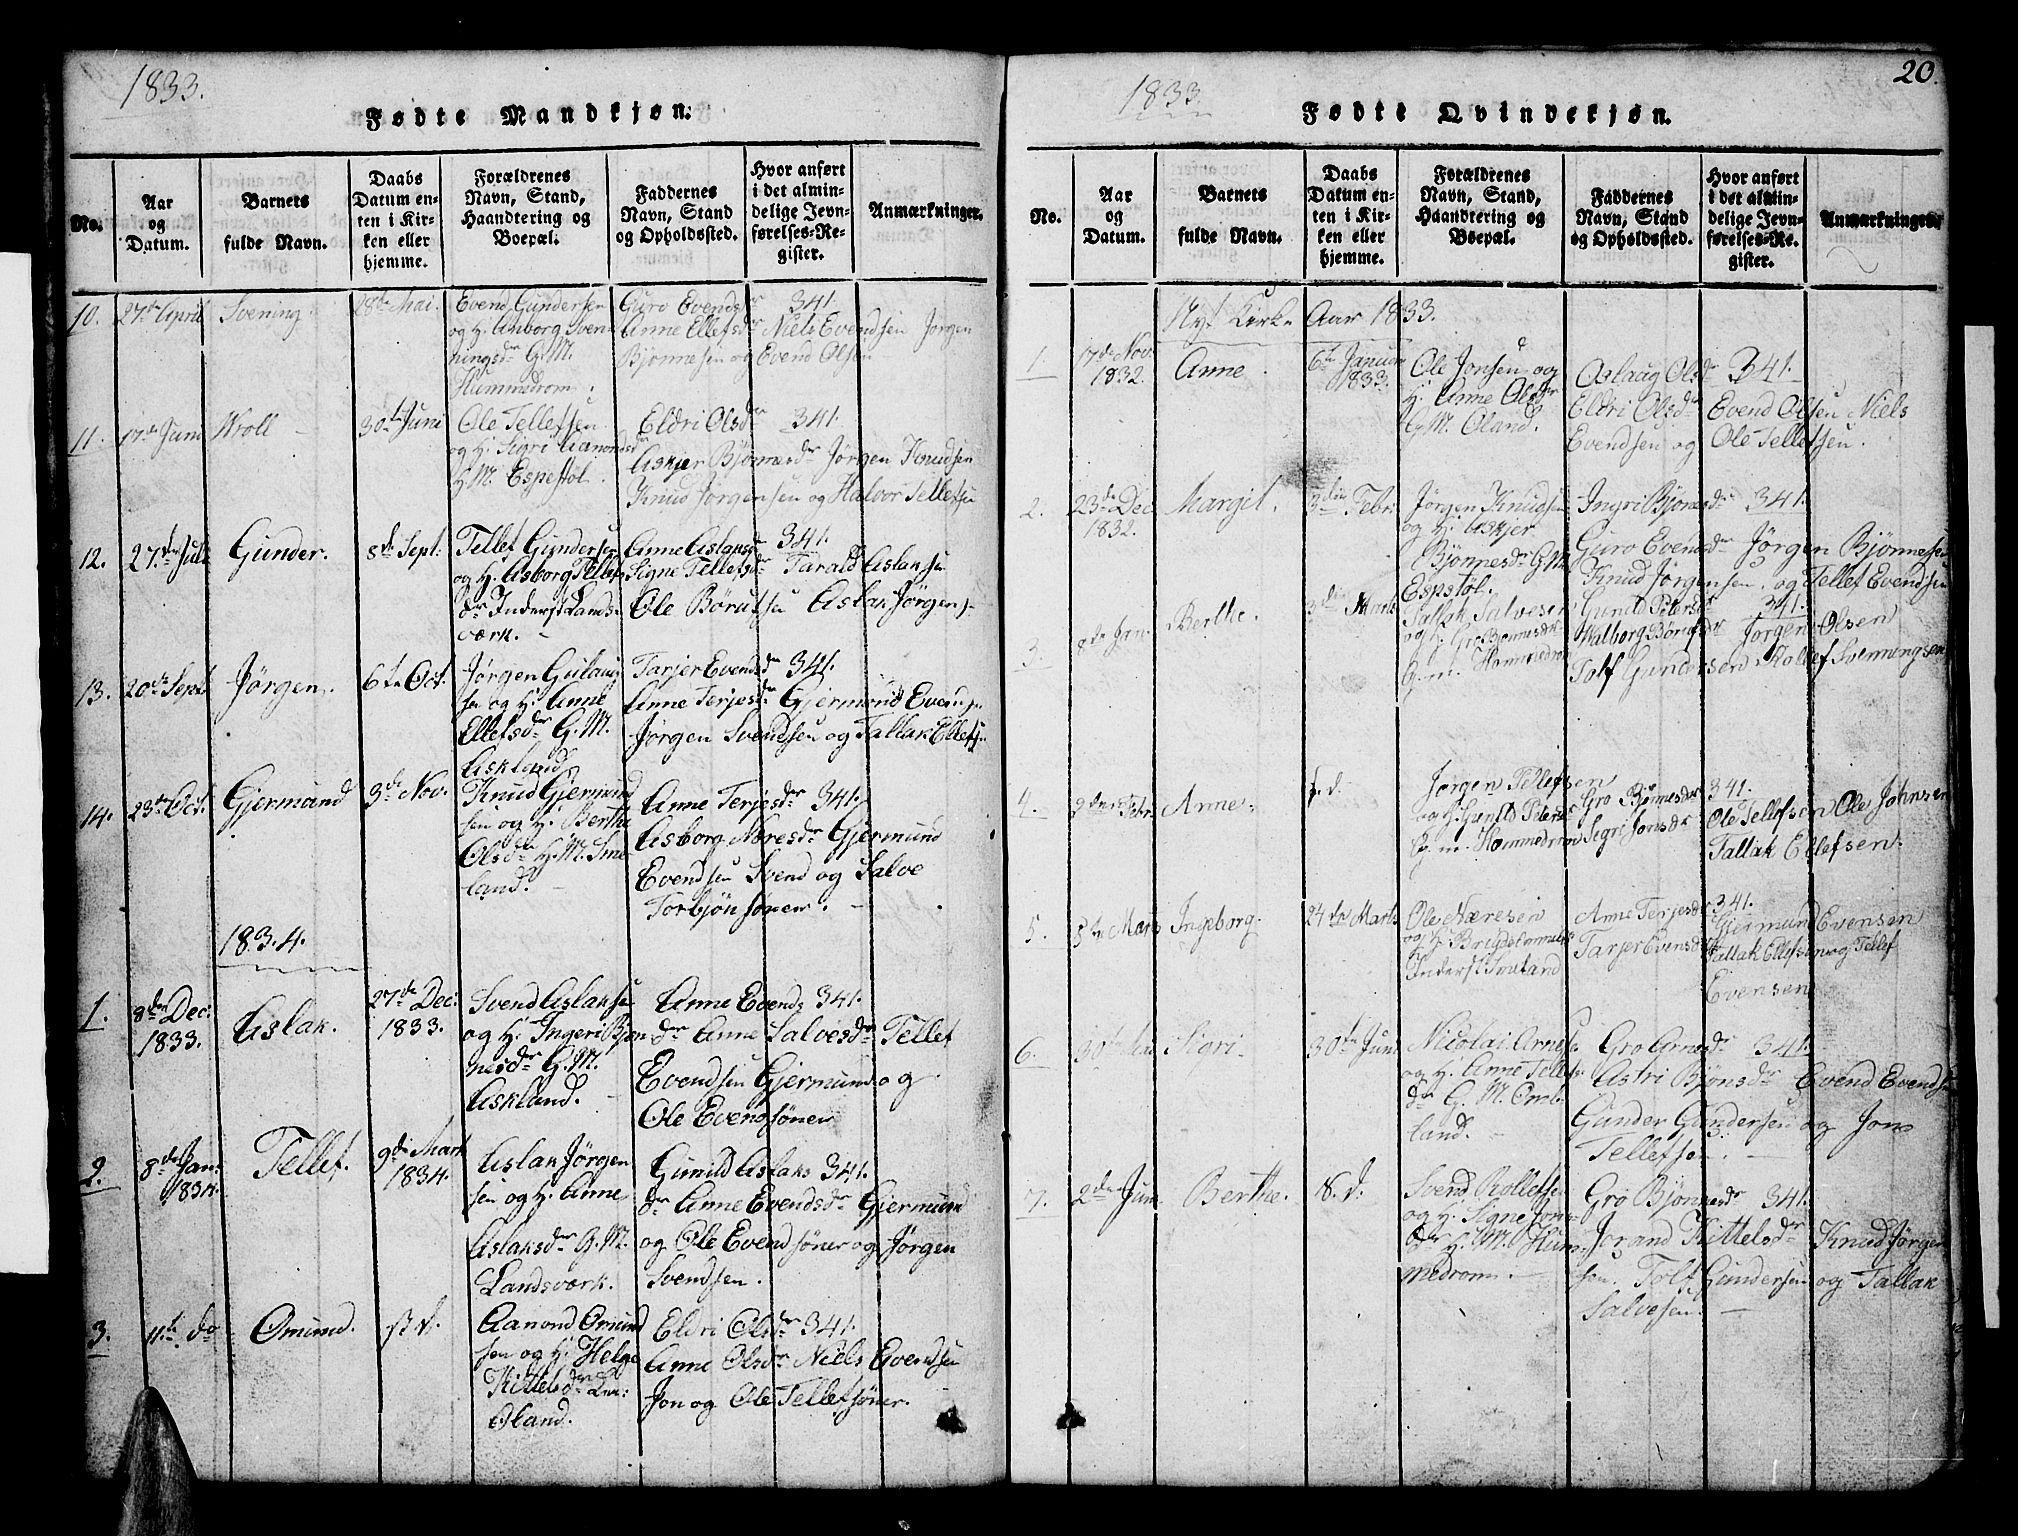 1833.
Fødte Mandkjøn.
No.
Aar
og
Datum.
Barnets
fulde Navn.
Daabs
Datum en-
ten i Kir-
ken eller
hjemme.
Forældrenes
Navn, Stand,
Haandtering og
Boepæl.
Faddernes
Navn, Stand
og Opholdssted.
Hvor anført
i det almin-
delige Jevn-
førelses-Re-
gister.
Anmærkninger.
10.
27de April
Svening.
28de Mai.
Evend Gundersen
og h. Anborg Sven
ningsdr G. M.
Hummedrom.
Guro Evendsdr 341.
Anne Ellefsdr Niels Evendsen Jørgen
Bjønnesen og Evend Olsen
11.
17de Juni
Wroll
30te Juni
Ole Tellefsen
og h. Sigri Aanondsdr
h. M. Espestøl.
Eldri Olsdr 341.
Askjer Bjønnesdr Jørgen Knudsen
Knud Jørgensen og Halvor Tellefsen
12.
27de Juli
Gunder.
8de Sept:
Tellef Gundersen
og h. Asborg Tellefs
dr Inderst Lands-
værk.
Anne Aslaksdr 341.
Signe Tellefsdr Tarald Aslaksen
Ole Børufsen Aslak Jørgens.
13.
20de Sept
Jørgen.
6te Oct.
Jørgen Gulaug
sen og h. Anne
Ellefsdr G. M.
Askland
Tarjer Evendsdr 341.
Anne Terjesdr Gjermund Evends.
Jørgen Svendsen og Tallak Ellefsen
14.
23de Oct.
Gjermund
3de Nov.
Knud Gjermund
sen og h. Berthe
Olsdr h. M. Sme
land.
Anne Terjesdr 341.
Asborg Næresdr Gjermund
Evendsen Svend og Salve
Torbjønsønner.
1834.
1.
8de Dec:
1833.
Aslak.
27de Dec:
1833.
Svend Aslaksen
og h. Ingeri Bjøn
nesdr G. M.
Askland.
Anne Evends 341.
dr Anne Salvesdr Tellef
Evendsen Gjermund og
Ole Evendsønner
2.
8de Jan:
1834.
Tellef.
9de Mart
1834.
Aslak Jørgen
sen og h. Anne
Aslaksdr G. M.
Landsværk.
Gunild Aslaks 341.
dr Anne Evendsdr Gjermund
og Ole Evendsønner og Jørgen
Svendsen.
3.
11te do
Omund.
s. d.
Aanond Omund
sen og h. Helge
Kittelsdr
Øland.
Eldri Olsdr 341.
Anne Olsdr Niels Evendsen
Jon og Ole Tellefsøner.
20.
1833.
Fødte Qvindekjøn.
No.
Aar
og
Datum.
Barnets
fulde Navn.
Daabs
Datum en-
ten i Kir-
ken eller
hjemme.
Forældrenes
Navn, Stand,
Haandtering og
Boepæl.
Faddernes
Navn, Stand
og Opholdssted.
Hvor anført
i det almin-
delige Jevn-
førelses-Re-
gister.
Anmærkninger.
Nyt Kirke Aar 1833.
1.
17de Nov.
1832.
Anne.
6te Januar
1833.
Ole Jonsen og
h. Anne Olsdr
G. M. Øland.
Aslaug Olsdr 341.
Eldri Olsdr Evend Olsen Niels
Evendsen og Ole Tellefsen.
2.
23de Dec.
1832.
Margit.
3die Febr.
Jørgen Knudsen
og h. Askjer
Bjønnesdr G. M.
Espstøl.
Ingri Bjønsdr 341.
Guro Evensdr Jørgen Bjønnesen
Knud Jørgensen og Tellef Evendsen
3.
8de Jan.
Berthe.
3die Marts
Tallak Salvesen
og h. Gro Bjønnesdr
G. m. Hommedrom
Gunild Pedersdr 341.
Walborg Børufsdr Jørgen Olsen
Tolf Gundersen Hallef Svenningsen
4.
9den Febr.
Anne.
s. d.
Jørgen Tellefsen
og h. Gunild Pedersdr
G. m. Hommedrom
Gro Bjønnesdr 341
Sigri Jonsdr
Ole Tellefsen Ole Johnsen
Tallak Ellefsen.
5.
5te Marts
Ingeborg.
24de Marts
Ole Næresen
Inderst Smeland
Anne Terjesdr 341.
Tarjer Evensdr
Gjermund Evensen
Tallak Ellefsen og Tellef
Evensen
6.
30te Mai
Sigri.
30te Juni
Nicolai Arnes.
og h. Anne Tellefs.
dr G. M.
land.
Gro Arnesdr 341.
Astri Bjønsdr Evend Evendsen
Gunder Gundersen og Jon
Tellefsen.
7.
2de Juni
Berthe.
s. d.
Svend Rollefsen
og h. Signe Jons
dr h. M. Hum-
medrom.
Gro Bjønnesdr 341.
Jorand Kittelsdr Knud Jørgen
sen. Tolf Gundersen og Tallak
Salvesen.